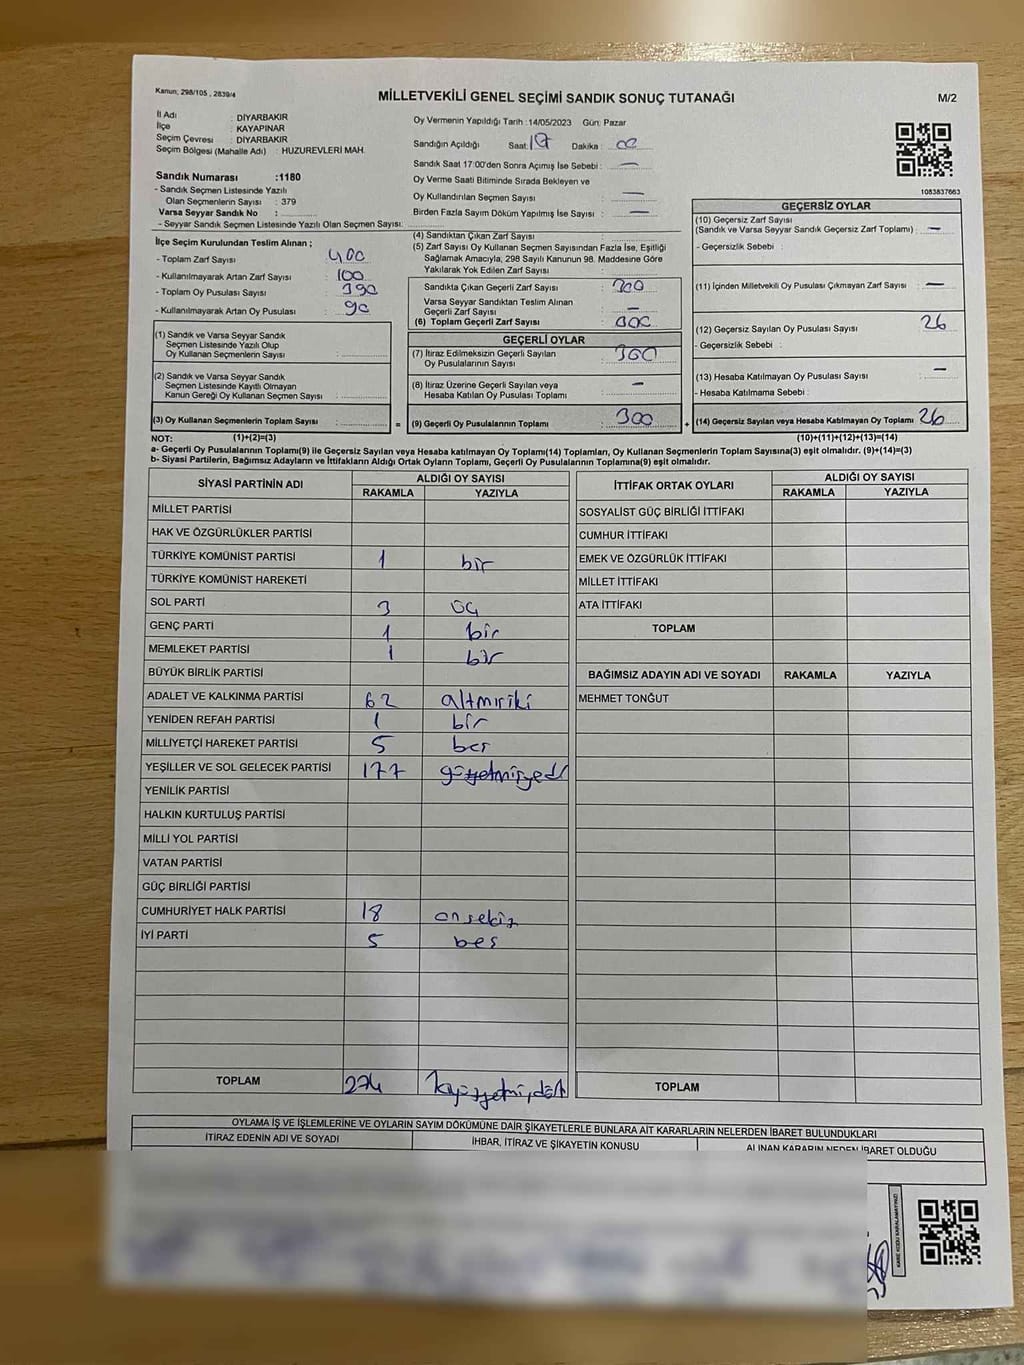 Kanun, 298/105 , 2839/4
MİLLETVEKİLİ GENEL SEÇİMİ SANDIK SONUÇ TUTANAĞI
M/2
İl Adı : DİYARBAKIR
İlçe : KAYAPINAR
Seçim Çevresi : DİYARBAKIR
Seçim Bölgesi (Mahalle Adı) : HUZUREVLERİ MAH.
Sandık Numarası :1180
- Sandık Seçmen Listesinde Yazılı
Olan Seçmenlerin Sayısı : 379
Varsa Seyyar Sandık No :
- Seyyar Sandık Seçmen Listesinde Yazılı Olan Seçmen Sayısı:
Oy Vermenin Yapıldığı Tarih :14/05/2023 Gün: Pazar
Sandığın Açıldığı Saat: 17 Dakika : 00
Sandık Saat 17:00'den Sonra Açımış İse Sebebi : —
Oy Verme Saati Bitiminde Sırada Bekleyen ve
Oy Kullandırılan Seçmen Sayısı : —
Birden Fazla Sayım Döküm Yapılmış İse Sayısı : —
1083837663
İlçe Seçim Kurulundan Teslim Alınan ;
- Toplam Zarf Sayısı : 400
- Kullanılmayarak Artan Zarf Sayısı : 100
- Toplam Oy Pusulası Sayısı : 390
- Kullanılmayarak Artan Oy Pusulası : 90
(1) Sandık ve Varsa Seyyar Sandık
Seçmen Listesinde Yazılı Olup
Oy Kullanan Seçmenlerin Sayısı :
(2) Sandık ve Varsa Seyyar Sandık
Seçmen Listesinde Kayıtlı Olmayan
Kanun Gereği Oy Kullanan Seçmen Sayısı :
(3) Oy Kullanan Seçmenlerin Toplam Sayısı :
(4) Sandıktan Çıkan Zarf Sayısı :
(5) Zarf Sayısı Oy Kullanan Seçmen Sayısından Fazla İse, Eşitliği
Sağlamak Amacıyla, 298 Sayılı Kanunun 98. Maddesine Göre
Yakılarak Yok Edilen Zarf Sayısı :
Sandıkta Çıkan Geçerli Zarf Sayısı : 300
Varsa Seyyar Sandıktan Teslim Alınan
Geçerli Zarf Sayısı : —
(6) Toplam Geçerli Zarf Sayısı : 300
GEÇERLİ OYLAR
(7) İtiraz Edilmeksizin Geçerli Sayılan
Oy Pusulalarının Sayısı : 300
(8) İtiraz Üzerine Geçerli Sayılan veya
Hesaba Katılan Oy Pusulası Toplamı : —
= (9) Geçerli Oy Pusulalarının Toplamı : 300 +
GEÇERSİZ OYLAR
(10) Geçersiz Zarf Sayısı
(Sandık ve Varsa Seyyar Sandık Geçersiz Zarf Toplamı) : —
- Geçersizlik Sebebi :
(11) İçinden Milletvekili Oy Pusulası Çıkmayan Zarf Sayısı : —
(12) Geçersiz Sayılan Oy Pusulası Sayısı : 26
- Geçersizlik Sebebi :
(13) Hesaba Katılmayan Oy Pusulası Sayısı : —
- Hesaba Katılmama Sebebi :
(14) Geçersiz Sayılan veya Hesaba Katılmayan Oy Toplamı : 26
NOT: (1)+(2)=(3) (10)+(11)+(12)+(13)=(14)
a- Geçerli Oy Pusulalarının Toplamı(9) ile Geçersiz Sayılan veya Hesaba katılmayan Oy Toplamı(14) Toplamları, Oy Kullanan Seçmenlerin Toplam Sayısına(3) eşit olmalıdır. (9)+(14)=(3)
b- Siyasi Partilerin, Bağımsız Adayların ve İttifakların Aldığı Ortak Oyların Toplamı, Geçerli Oy Pusulalarının Toplamına(9) eşit olmalıdır.
SİYASİ PARTİNİN ADI ALDIĞI OY SAYISI
RAKAMLA YAZIYLA
MİLLET PARTİSİ
HAK VE ÖZGÜRLÜKLER PARTİSİ
TÜRKİYE KOMÜNİST PARTİSİ 1 bir
TÜRKİYE KOMÜNİST HAREKETİ
SOL PARTİ 3 üç
GENÇ PARTİ 1 bir
MEMLEKET PARTİSİ 1 bir
BÜYÜK BİRLİK PARTİSİ
ADALET VE KALKINMA PARTİSİ 62 altmıriki
YENİDEN REFAH PARTİSİ 1 bir
MİLLİYETÇİ HAREKET PARTİSİ 5 beş
YEŞİLLER VE SOL GELECEK PARTİSİ 177
YENİLİK PARTİSİ
HALKIN KURTULUŞ PARTİSİ
MİLLİ YOL PARTİSİ
VATAN PARTİSİ
GÜÇ BİRLİĞİ PARTİSİ
CUMHURİYET HALK PARTİSİ 18 onsekiz
İYİ PARTİ 5 beş
TOPLAM 274
İTTİFAK ORTAK OYLARI ALDIĞI OY SAYISI
RAKAMLA YAZIYLA
SOSYALİST GÜÇ BİRLİĞİ İTTİFAKI
CUMHUR İTTİFAKI
EMEK VE ÖZGÜRLÜK İTTİFAKI
MİLLET İTTİFAKI
ATA İTTİFAKI
TOPLAM
BAĞIMSIZ ADAYIN ADI VE SOYADI RAKAMLA YAZIYLA
MEHMET TONĞUT
TOPLAM
OYLAMA İŞ VE İŞLEMLERİNE VE OYLARIN SAYIM DÖKÜMÜNE DAİR ŞİKAYETLERLE BUNLARA AİT KARARLARIN NELERDEN İBARET BULUNDUKLARI
İTİRAZ EDENİN ADI VE SOYADI İHBAR, İTİRAZ VE ŞİKAYETİN KONUSU ALINAN KARARIN NEDEN İBARET OLDUĞU
KARE KODU KARALAMAYINIZ!